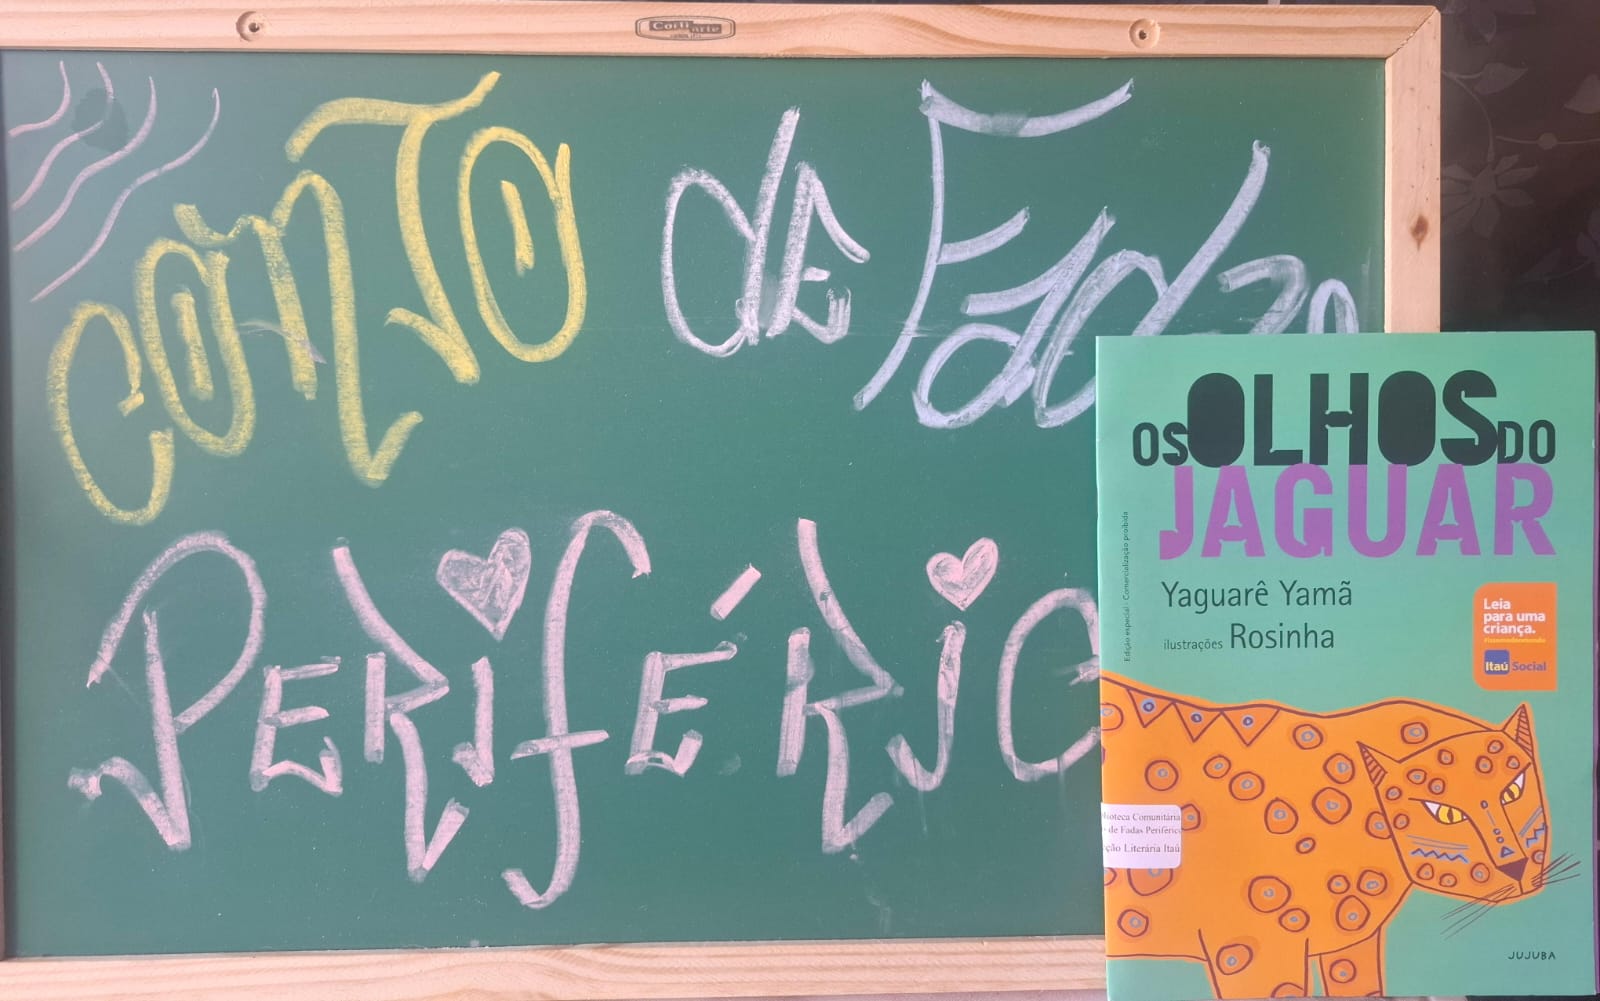 Corti
arte
CONTO de Fadas
PERIFÉRIC
OS OLHOS DO
JAGUAR
Yaguarê Yamã
ilustrações Rosinha
Edição especial - Comercialização proibida
Leia
para uma
criança.
Itaú Social
blioteca Comunitária
de Fadas Periféric
ção Literária Itaú
JUJUBA